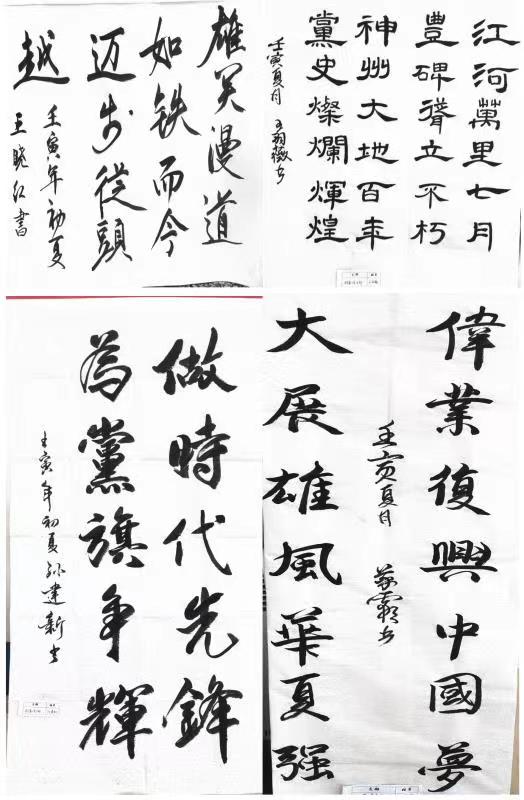 雄关漫道
如铁而今
迈步從頭
越
壬寅年初夏
王晓红書
江河萬里七月
豐碑聳立不朽
神州大地百年
黨史燦爛輝煌
壬寅夏月
做時代先鋒
為黨旗争輝
壬寅年初夏孙建新书
偉業復興中國夢
大展雄風華夏强
壬寅夏月